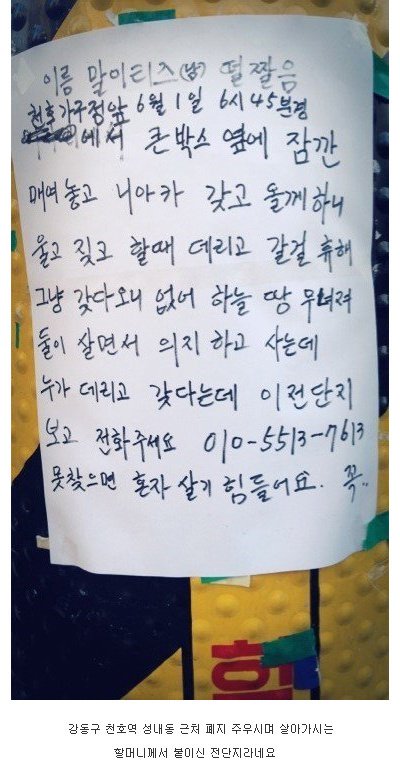 이름 말이티즈(남) 털짤음
천호가구점앞 6월 1일 6시 45분경
에서 큰박스 옆에 잠깐
매여놓고 니아카 갖고 올께하니
울고 짖고 할때 데리고 갈걸 휴해
그냥 갖다오니 없어 하늘 땅 무너져
둘이 살면서 의지 하고 사는데
누가 데리고 갖다는데 이전단지
보고 전화주세요 010-5513-7613
못찾으면 혼자 살기 힘들어요. 꼭..
강동구 천호역 성내동 근처 폐지 주우시며 살아가시는
할머니께서 붙이신 전단지라네요